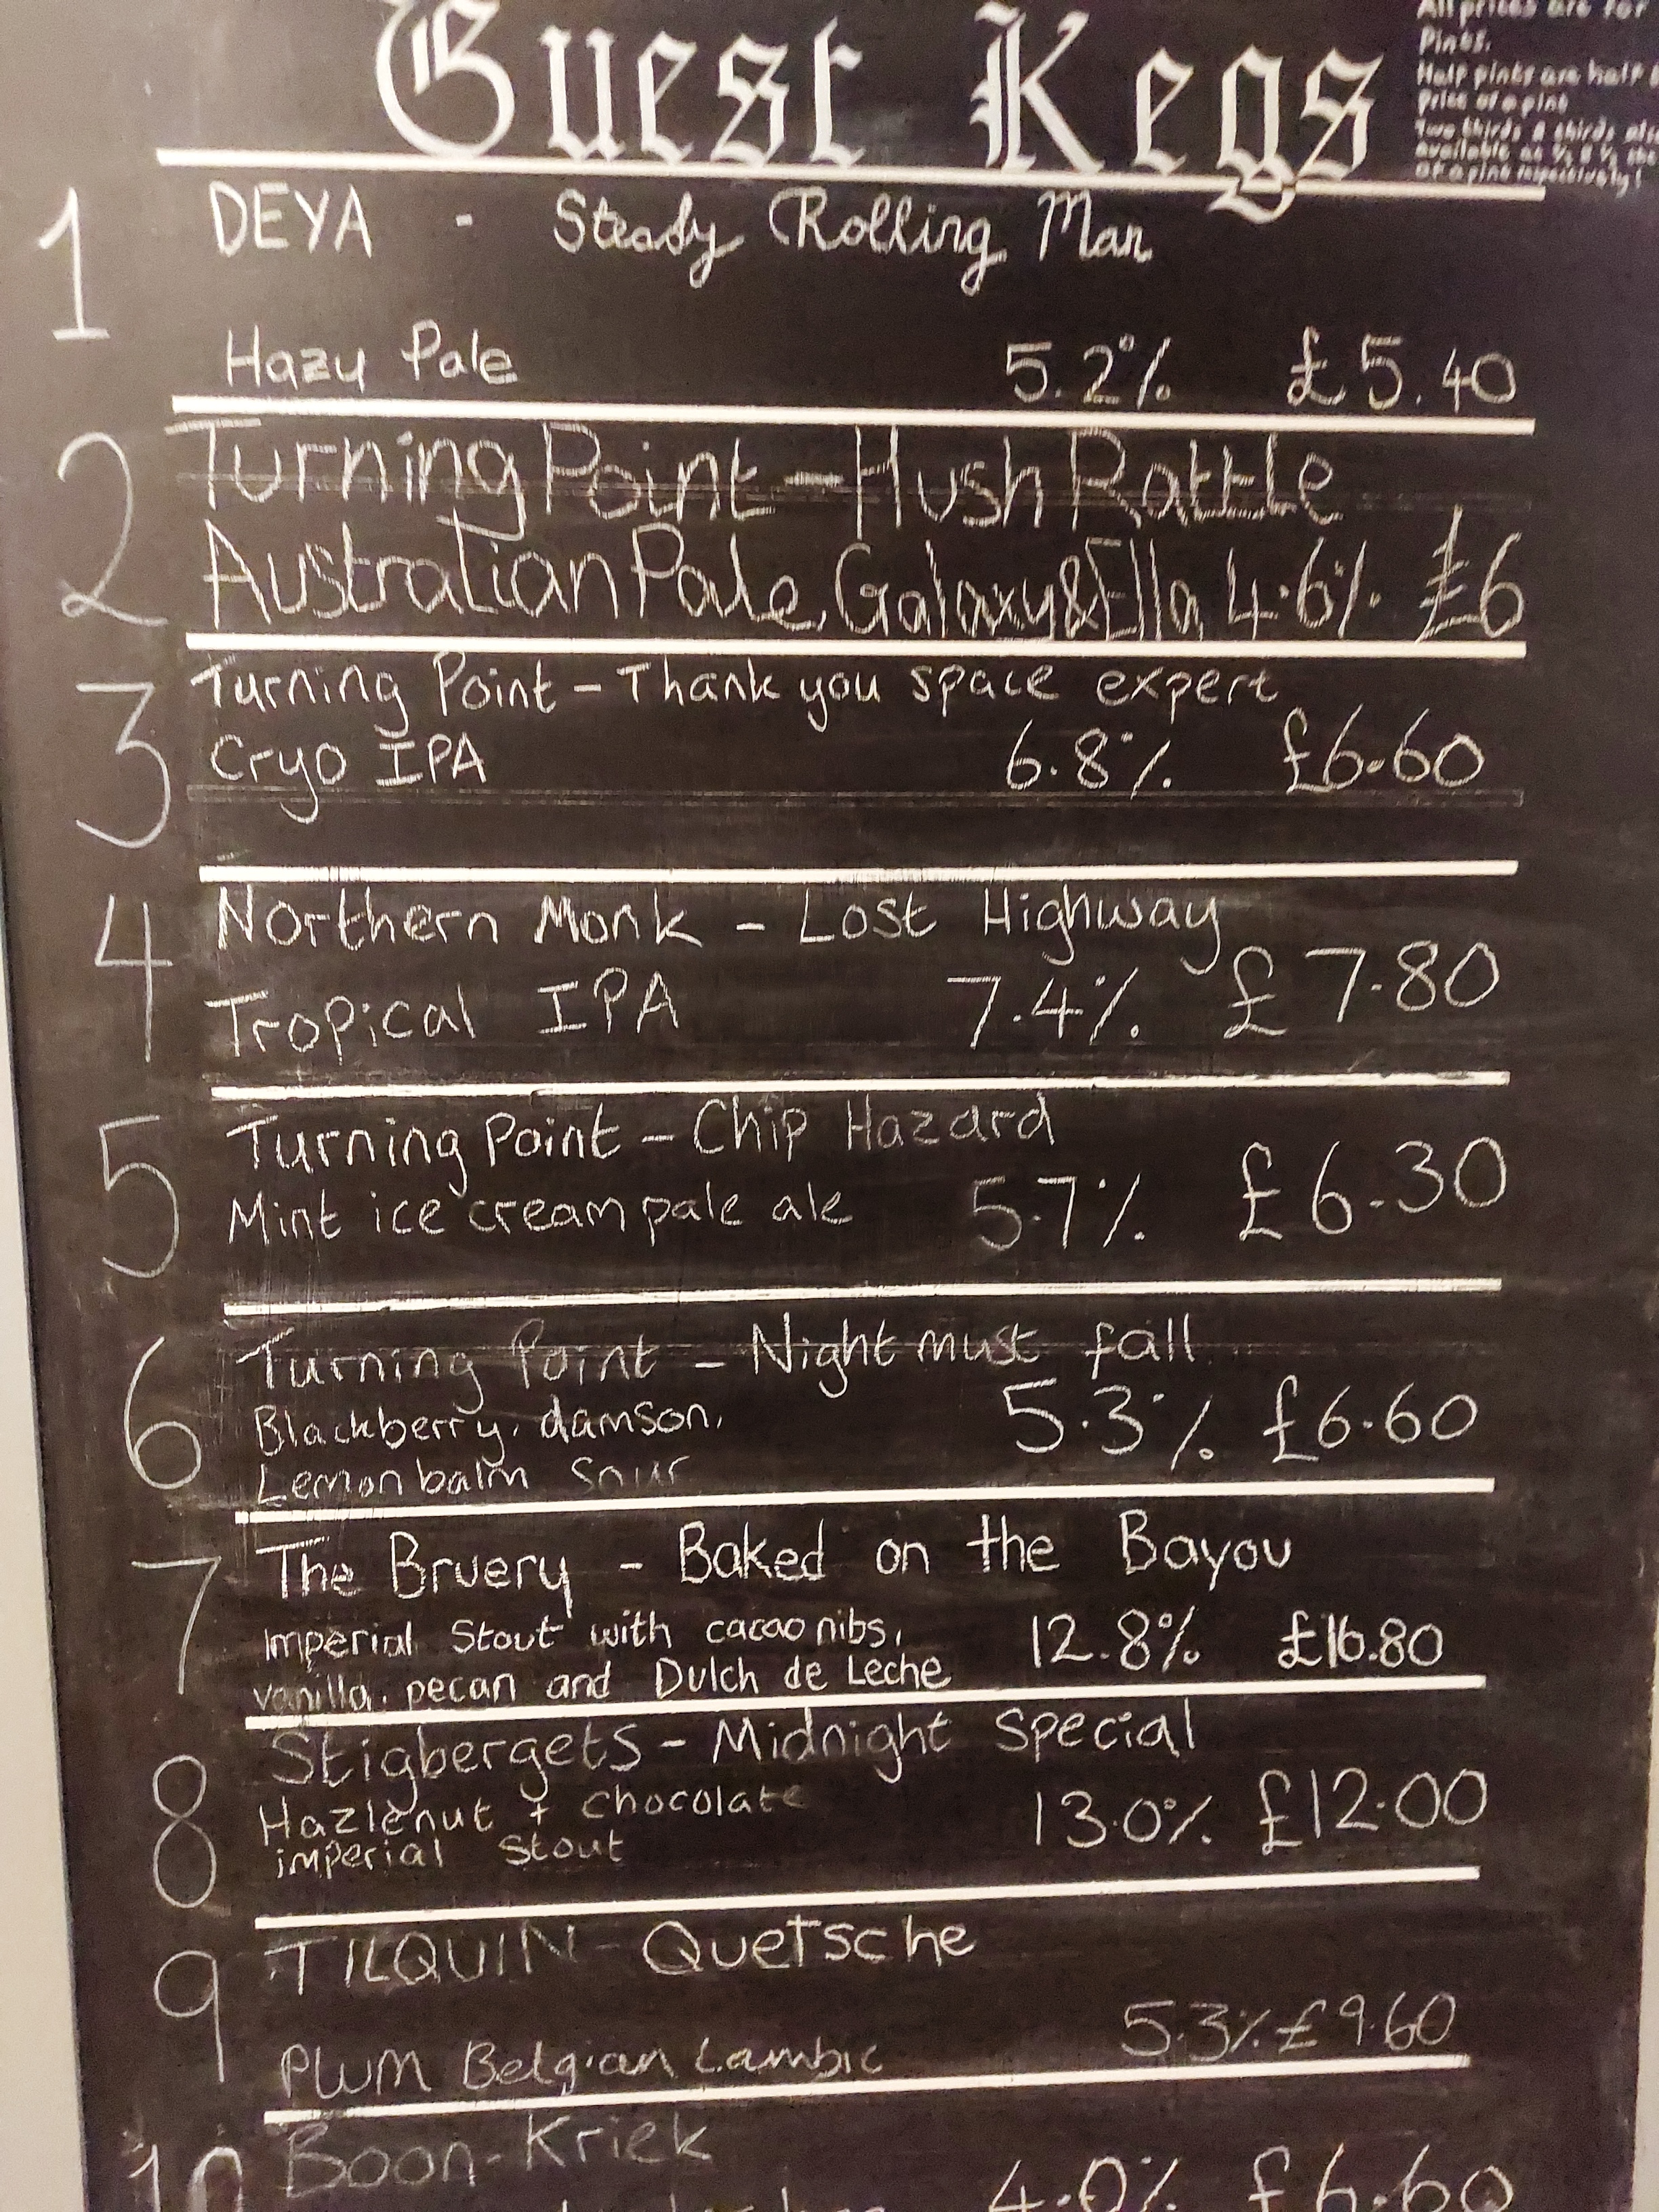 Guest Kegs
All prices are for
Pints.
Half pints are half
price of a pint
Two thirds & thirds also
available at ⅔ & ⅓ the
of a pint respectively!
1 DEYA - Steady Rolling Man
Hazy Pale 5.2% £5.40
2 Turning Point - Hush Rattle
Australian Pale, Galaxy & Ella 4.6% £6
3 Turning Point - Thank you space expert
Cryo IPA 6.8% £6.60
4 Northern Monk - Lost Highway
Tropical IPA 7.4% £7.80
5 Turning Point - Chip Hazard
Mint ice cream pale ale 5.7% £6.30
6 Turning Point - Night must fall
Blackberry, damson, 5.3% £6.60
Lemon balm Sour
7 The Bruery - Baked on the Bayou
Imperial Stout with cacao nibs, 12.8% £16.80
vanilla, pecan and Dulch de Leche
8 Stigbergets - Midnight Special
Hazlenut + chocolate 13.0% £12.00
imperial Stout
9 TILQUIN - Quetsche
5.3% £9.60
Plum Belgian Lambic
10 Boon - Kriek
4.0% £6.60